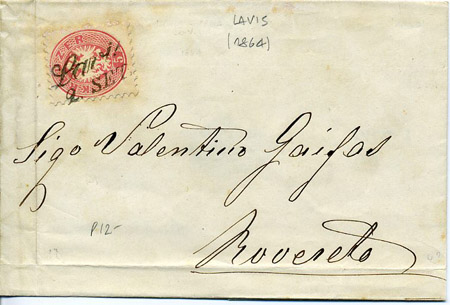 LAVIS
(1864)
Lavis
2 SET
Sigr Valentino Gaifas
P12-
Rovereto